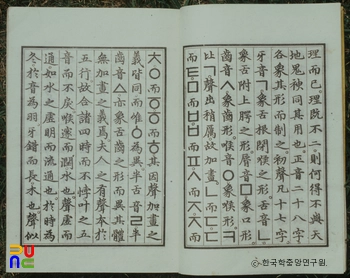 理而已理既不二則何得不與天
地鬼神同其用也正音二十八字
各象其形而制之初聲凡十七字
牙音ㄱ象舌根閉喉之形舌音ㄴ
象舌附上腭之形脣音ㅁ象口形
齒音ㅅ象齒形喉音ㅇ象喉形ㅋ
比ㄱ聲出稍厲故加畫ㄴ而ㄷㄷ
而ㅌㅁ而ㅂㅂ而ㅍㅅ而ㅈㅈ而
ㅊㅇ而ㆆㆆ而ㅎ其因聲加畫之
義皆同而唯ㆁ為異半舌音ㄹ半
齒音ㅿ亦象舌齒之形而異其體
無加畫之義焉夫人之有聲本於
五行故合諸四時而不悖叶之五
音而不戾喉邃而潤水也聲虛而
通如水之虛明而流通也於時為
冬於音為羽牙錯而長木也聲似
ⓒ한국학중앙연구원